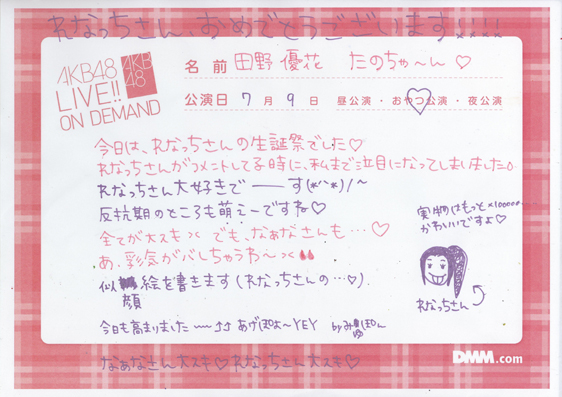 れなっちさん、おめでとうございます!!!!
AKB48
LIVE!!
ON DEMAND
AKB
48
名前 田野 優花 たのちゃ〜ん♡
公演日 7月9日 昼公演・おやつ公演・夜公演
今日は、れなっちさんの生誕祭でした♡
れなっちさんがコメントしてる時に、私まで泣目になってしまいました。
れなっちさん大好きで――す(*^^*)/~
反抗期のところも萌えーですね♡
全てが大スキ でも、なぁなさんも…♡
あ、彩気がバレちゃうわ~
似顔絵を書きます(れなっちさんの…♡)
実物はもっと×100000
かわいいですよ♡
れなっちさん
今日も高まりました~~ ♪♪ あげぽよ~YEY
なぁなさん大スキ♡れなっちさん大スキ♡
DMM.com